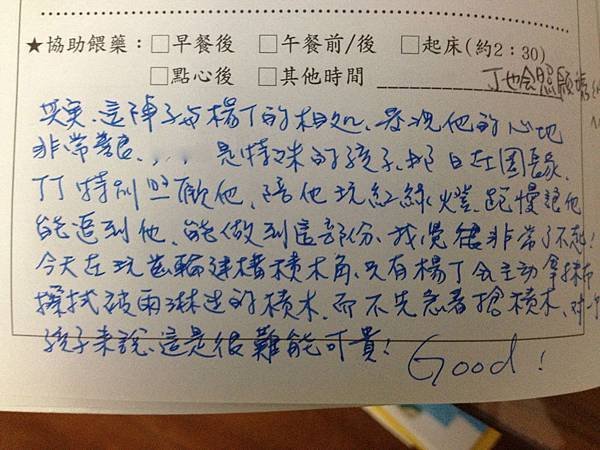 ★協助餵藥：□早餐後 □午餐前/後 □起床(約2：30)
□點心後 □其他時間
丁也會照顧
其實、這陣子與楊丁的相處、發現他的心地
非常善良、、、、是特殊的孩子、那日在園長、
丁丁特別照顧他、陪他玩紅綠燈、跑慢讓他
能追到他、能做到這部份、我覺得非常了不起！
今天在玩齒輪建構積木角、只有楊丁會主動拿抹布
擦拭被雨淋過的積木、而不先急著搶積木、对一个
孩子來說、這是很難能可貴！
Good！